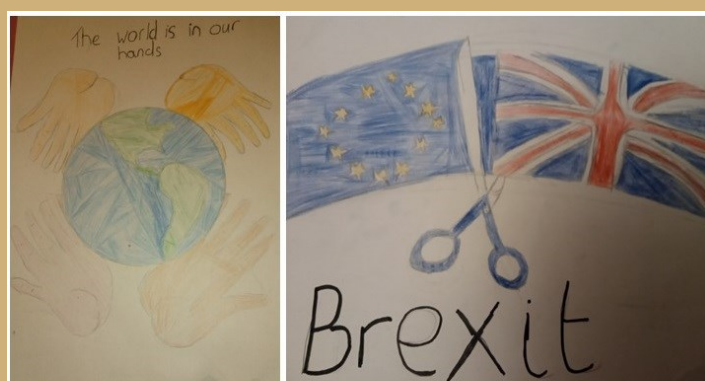 The world is in our
hands
Brexit